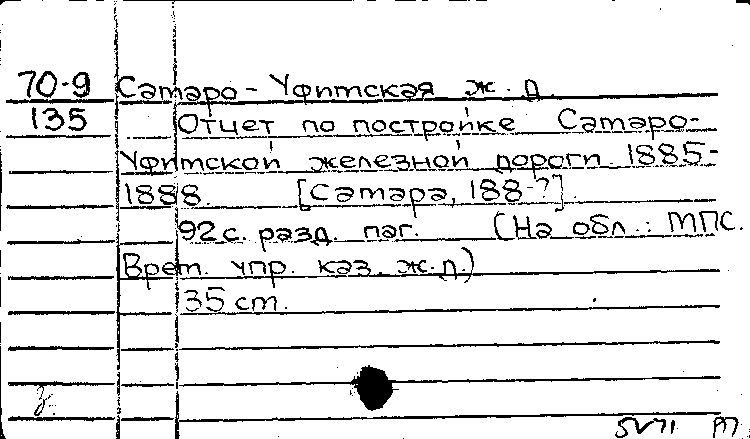 70-9 Самаро-Уфимская ж. д.
135 Отчет по постройке Самаро-
Уфимской железной дороги 1885-
1888. [Самара, 188-?].
92 с. разд. паг. (На обл.: МПС.
Врем. упр. каз. ж.д.)
35 cm.